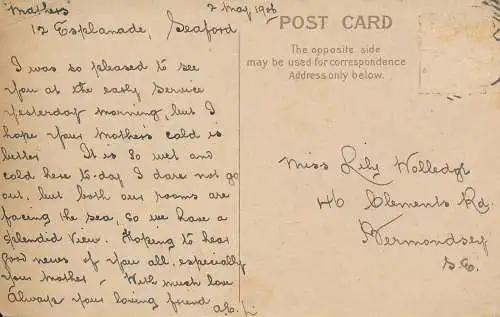 Mathers
12 Esplanade, Seaford
2 May 1906
I was so pleased to see
you at the early service
yesterday morning, but I
hope your Mothers cold is
better. It is so wet and
cold here to-day I dare not go
out, but both our rooms are
facing the sea, so we have a
splendid view. Hoping to hear
good news of you all, especially
your Mother - With much love
Always your loving friend
POST CARD
The opposite side
may be used for correspondence
Address only below.
Miss Lily Wolledge
46 Clements Rd.
Bermondsey
S.E.